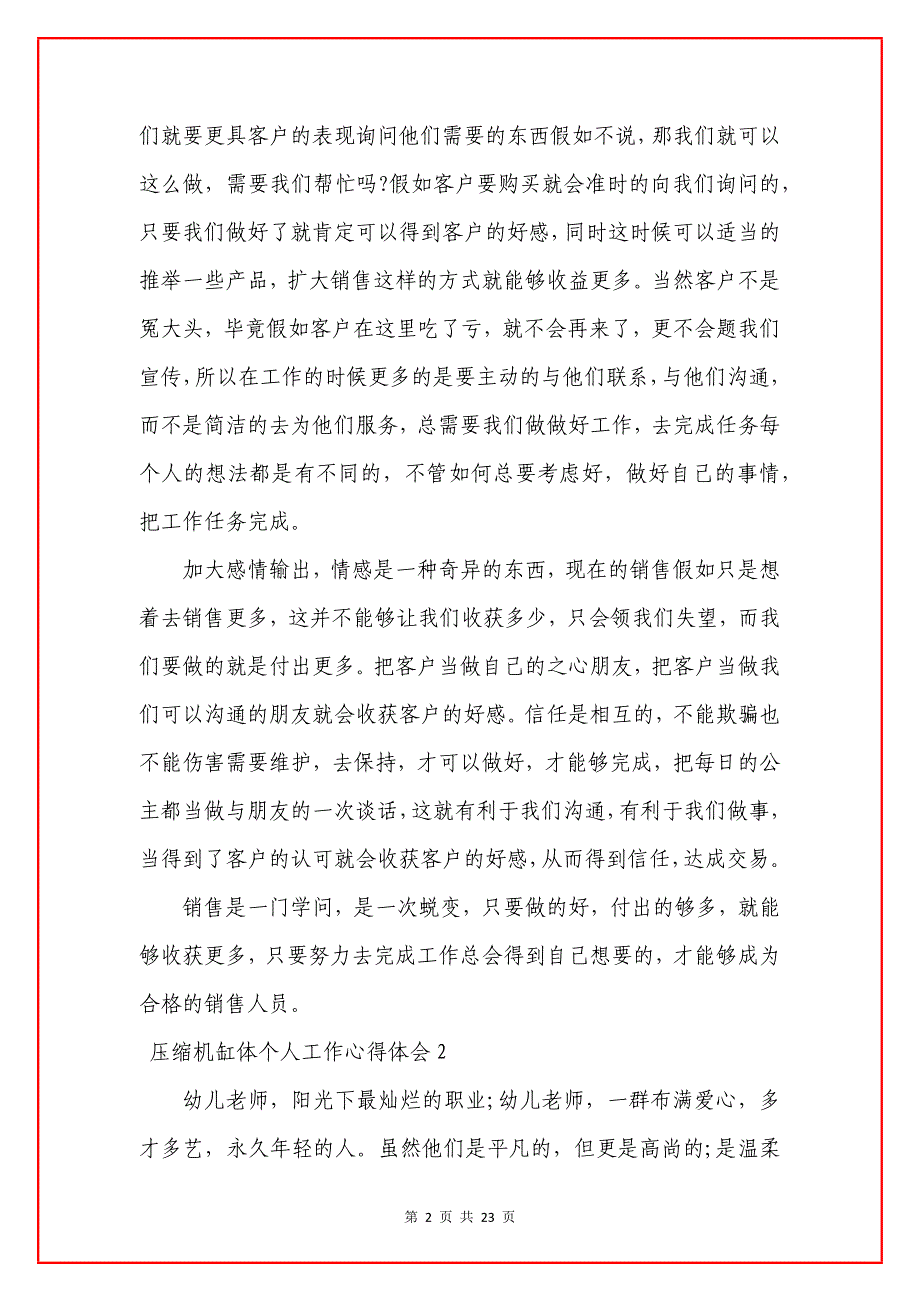 们就要更具客户的表现询问他们需要的东西假如不说，那我们就可以
这么做，需要我们帮忙吗?假如客户要购买就会准时的向我们询问的，
只要我们做好了就肯定可以得到客户的好感，同时这时候可以适当的
推举一些产品，扩大销售这样的方式就能够收益更多。当然客户不是
冤大头，毕竟假如客户在这里吃了亏，就不会再来了，更不会题我们
宣传，所以在工作的时候更多的是要主动的与他们联系，与他们沟通，
而不是简洁的去为他们服务，总需要我们做做好工作，去完成任务每
个人的想法都是有不同的，不管如何总要考虑好，做好自己的事情，
把工作任务完成。
加大感情输出，情感是一种奇异的东西，现在的销售假如只是想
着去销售更多，这并不能够让我们收获多少，只会领我们失望，而我
们要做的就是付出更多。把客户当做自己的之心朋友，把客户当做我
们可以沟通的朋友就会收获客户的好感。信任是相互的，不能欺骗也
不能伤害需要维护，去保持，才可以做好，才能够完成，把每日的公
主都当做与朋友的一次谈话，这就有利于我们沟通，有利于我们做事，
当得到了客户的认可就会收获客户的好感，从而得到信任，达成交易。
销售是一门学问，是一次蜕变，只要做的好，付出的够多，就能
够收获更多，只要努力去完成工作总会得到自己想要的，才能够成为
合格的销售人员。
压缩机缸体个人工作心得体会 2
幼儿老师，阳光下最灿烂的职业;幼儿老师，一群布满爱心，多
才多艺，永久年轻的人。虽然他们是平凡的，但更是高尚的;是温柔
第 2 页 共 23 页